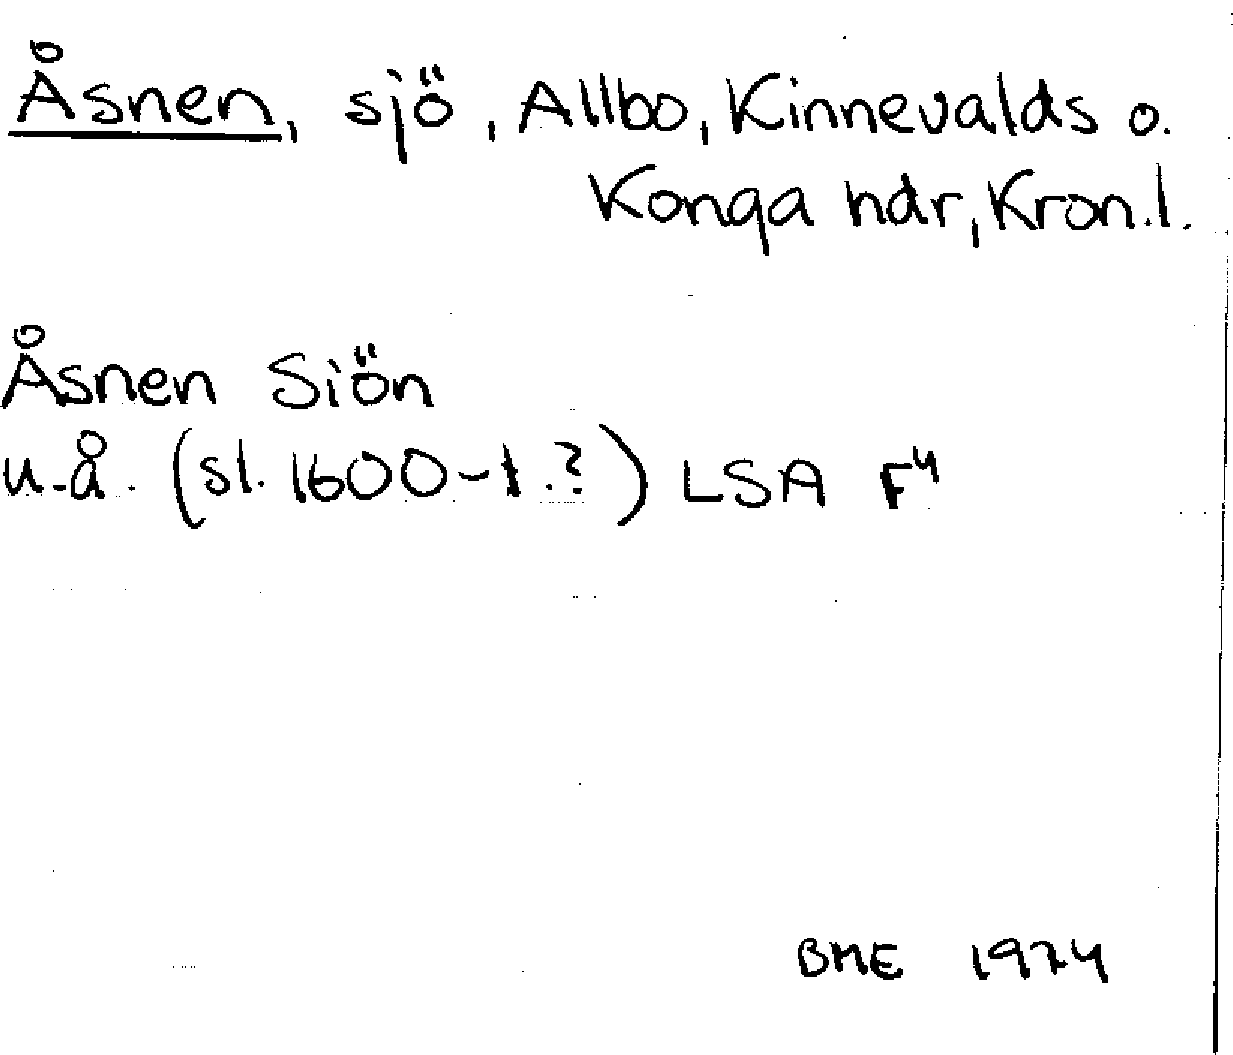 Åsnen, sjö, Allbo, Kinnevalds o.
Konga hdr, Kron.l.
Åsnen Siön
u.å. (sl. 1600-t.?) LSA F⁴
BME 1974